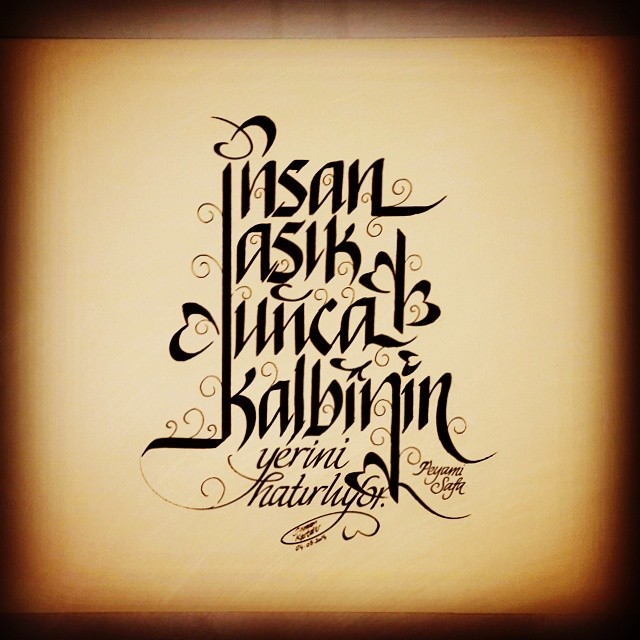 insan
aşık
olunca
kalbinin
yerini
hatırlıyor.
Peyami
Safa